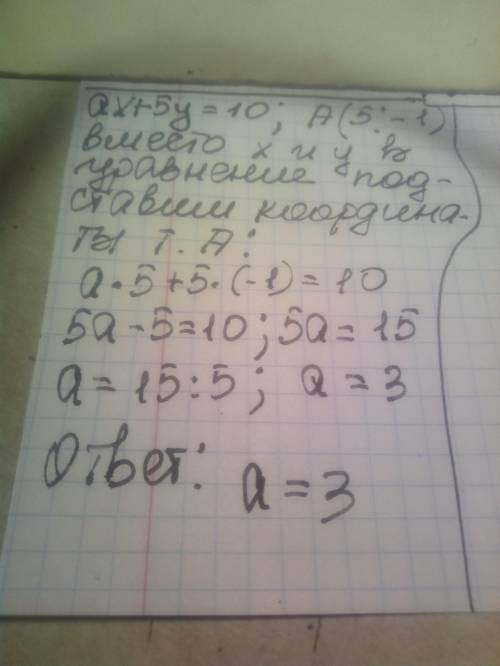 ax+5y=10; A(5;-1)
вместо x и y в
уравнение под-
ставим координа-
ты т. A:
a·5+5·(-1)=10
5a-5=10; 5a=15
a=15:5; a=3
Ответ: a=3